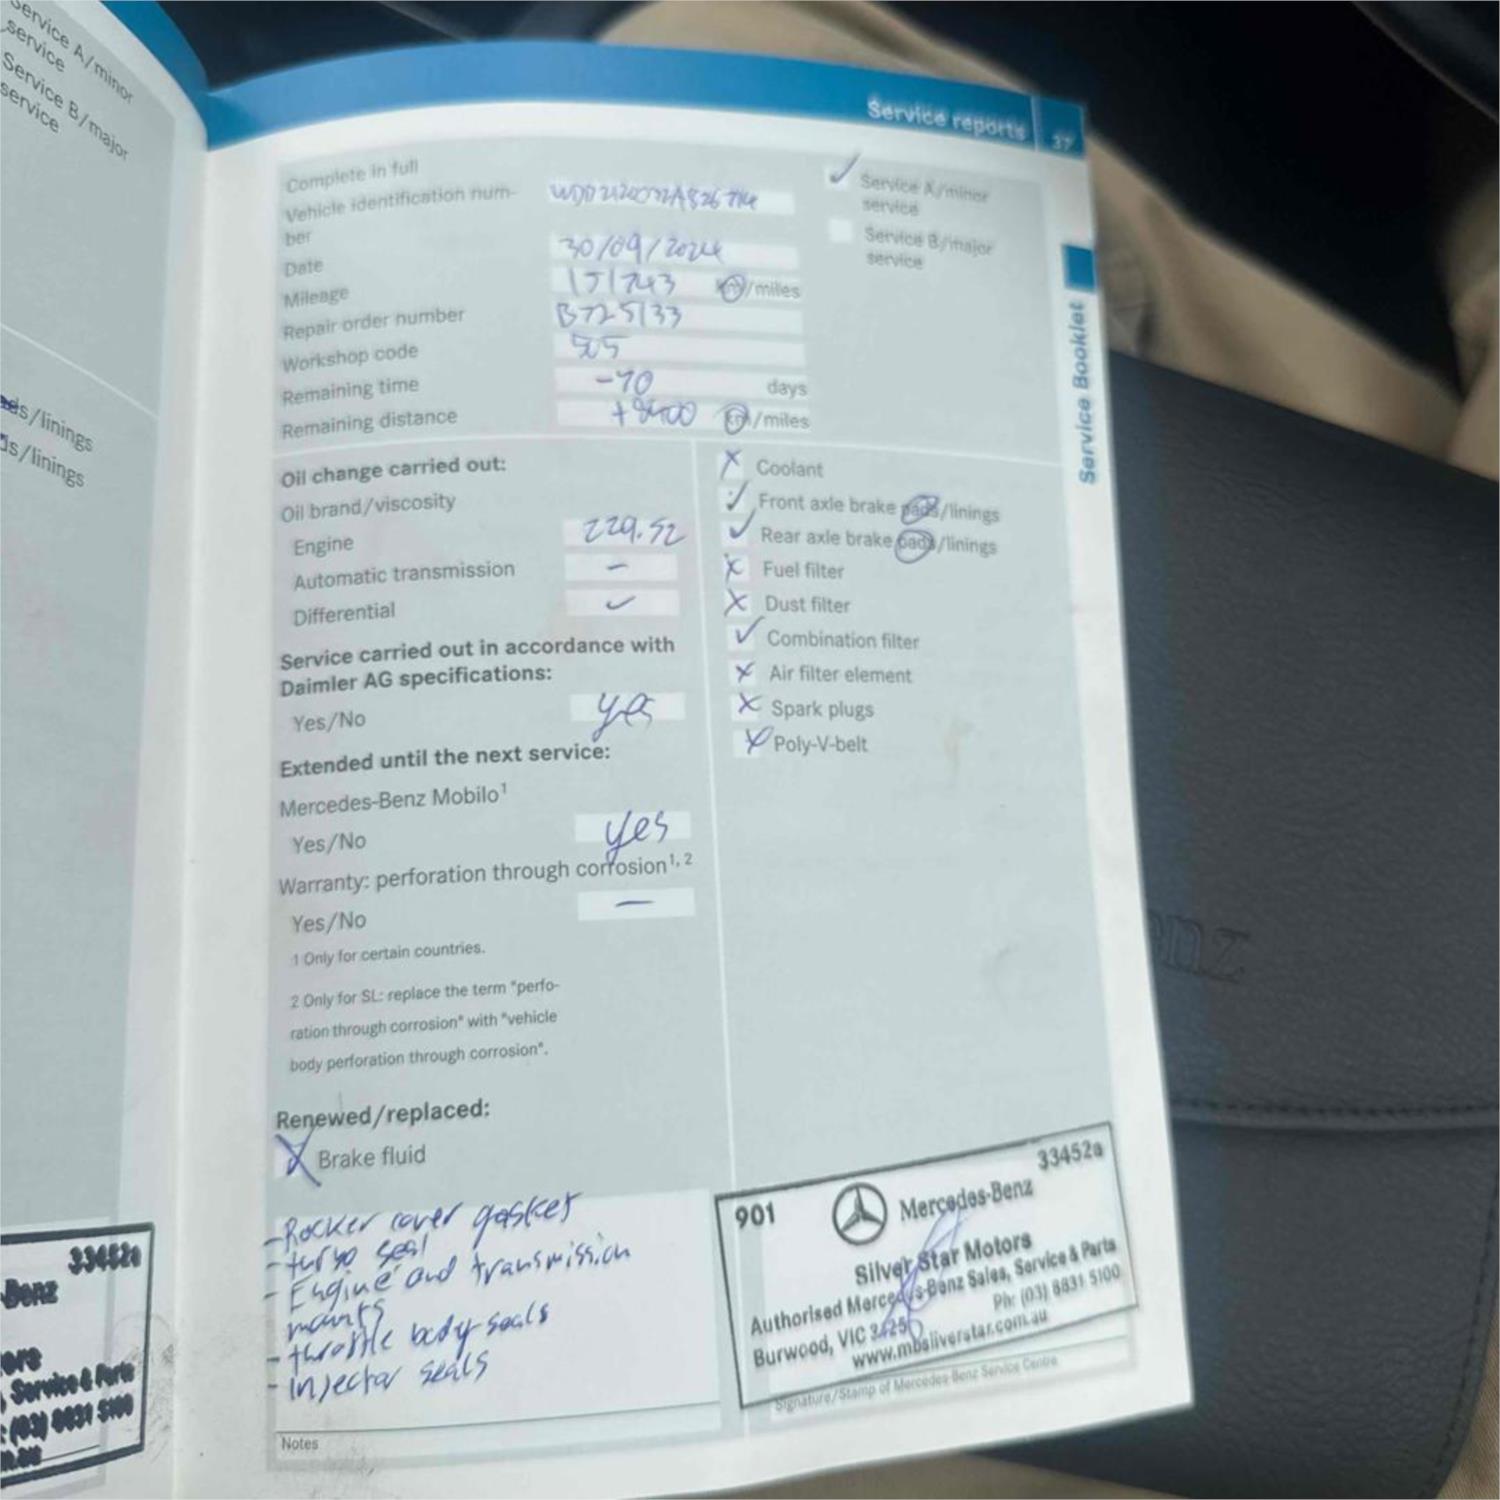 Service A/minor
service
Service B/major
service
ds/linings
ds/linings
33452a
Benz
ors
Service & Parts
: (03) 8831 5100
Service reports 37
Complete in full
Vehicle identification num-
ber
Date 30/09/2024
Mileage 151743 km/miles
Repair order number B725133
Workshop code 505
Remaining time -70 days
Remaining distance +8400 km/miles
✓ Service A/minor
service
Service B/major
service
Service Booklet
Oil change carried out:
Oil brand/viscosity
Engine 229.52
Automatic transmission –
Differential ✓
Service carried out in accordance with
Daimler AG specifications:
Yes/No yes
Extended until the next service:
Mercedes-Benz Mobilo¹
Yes/No yes
Warranty: perforation through corrosion¹,²
Yes/No –
1 Only for certain countries.
2 Only for SL: replace the term "perfo-
ration through corrosion" with "vehicle
body perforation through corrosion".
Renewed/replaced:
X Brake fluid
X Coolant
✓ Front axle brake pads/linings
✓ Rear axle brake pads/linings
X Fuel filter
X Dust filter
✓ Combination filter
X Air filter element
X Spark plugs
X Poly-V-belt
- Rocker cover gasket
- turbo seal
- Engine and transmission
mounts
- throttle body seals
- Injector seals
Notes
901 Mercedes-Benz 33452a
Silver Star Motors
Authorised Mercedes-Benz Sales, Service & Parts
Burwood, VIC Ph: (03) 8831 5100
www.mbsilverstar.com.au
Signature/Stamp of Mercedes-Benz Service Centre
enz